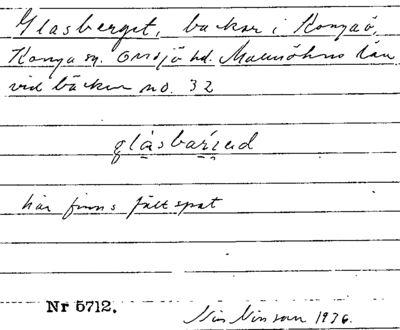 Glasberget, backar i Konga ö,
Konga sn. Onsjö hd. Malmöhus län
vid bäcken no. 32
glásbaried
här finns fältspat
Nr 5712.
Nils Nilsson 1936.